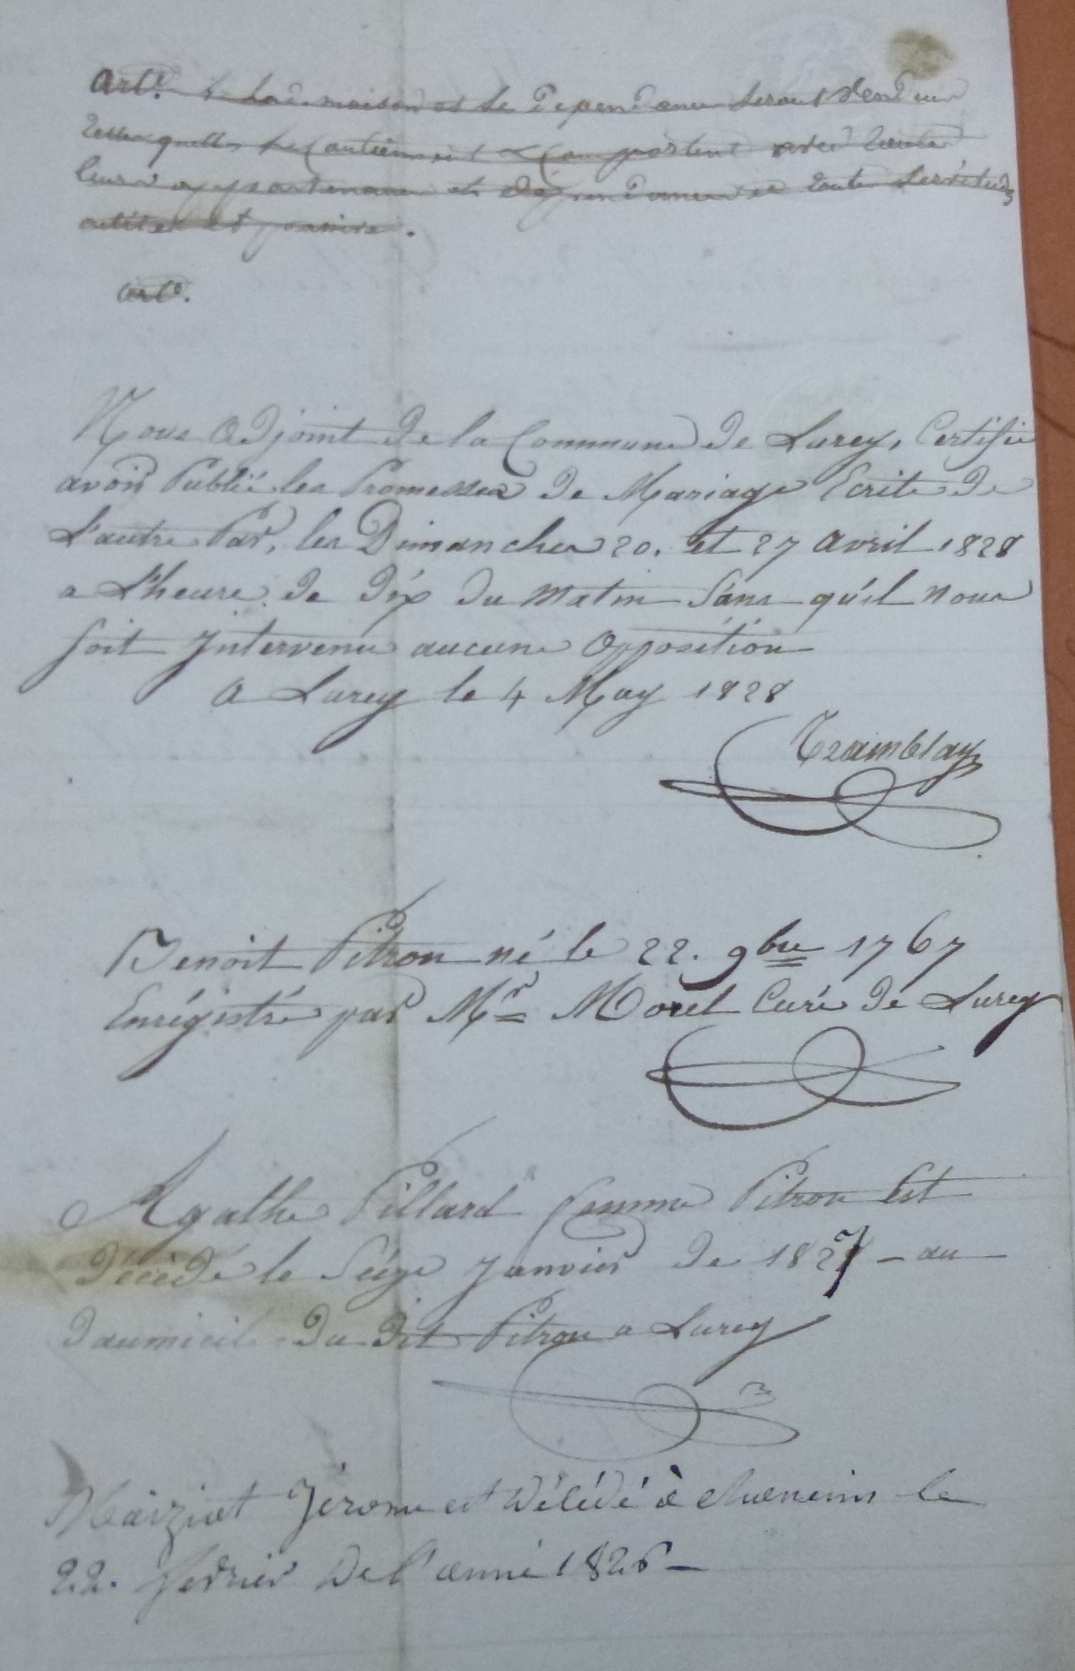 Art.e lad. maison et se Dependances seront vendus
telles quelles se Contiennent & Comportent avec toutes
leurs appartenances et dépendances et toutes servitudes
actives et passives.
art.e
Nous Adjoint de la Commune de Lurey, Certifie
avoir Publié les Promesses de Mariage Ecrite de
L'autre Par, les Dimanches 20. et 27 avril 1828
a L'heure de dix du matin Sans qu'il nous
soit Intervenu aucune Opposition
a Lurey le 4 May 1828
Tramblay
Benoit Pitron né le 22. 9bre 1767
Enrégistré par Mr Morel Curé de Lurey
Agathe Pillard femme Pitron Est
décédé le Séize Janvier de 1827 - au
daumicile du dit Pitron a Lurey
Jérome est décédé à le
22. fevrier de l'anné 1826 -